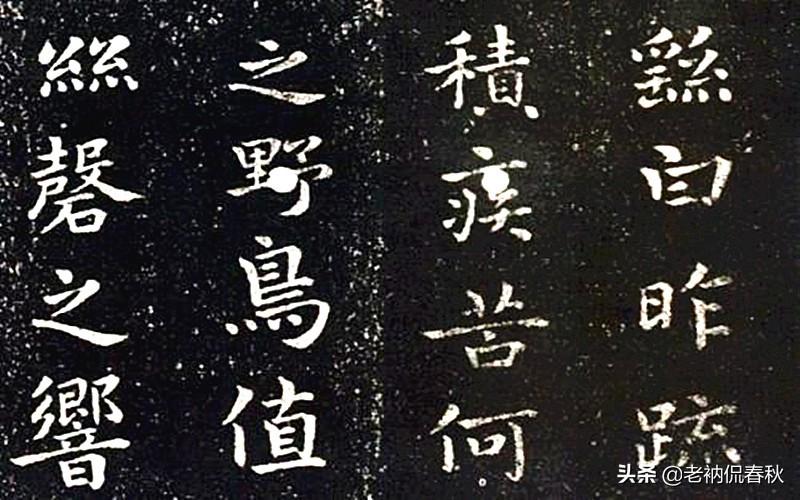 繇白昨疏
積疾苦何
之野鳥值
絲磬之響
头条 @老衲侃春秋